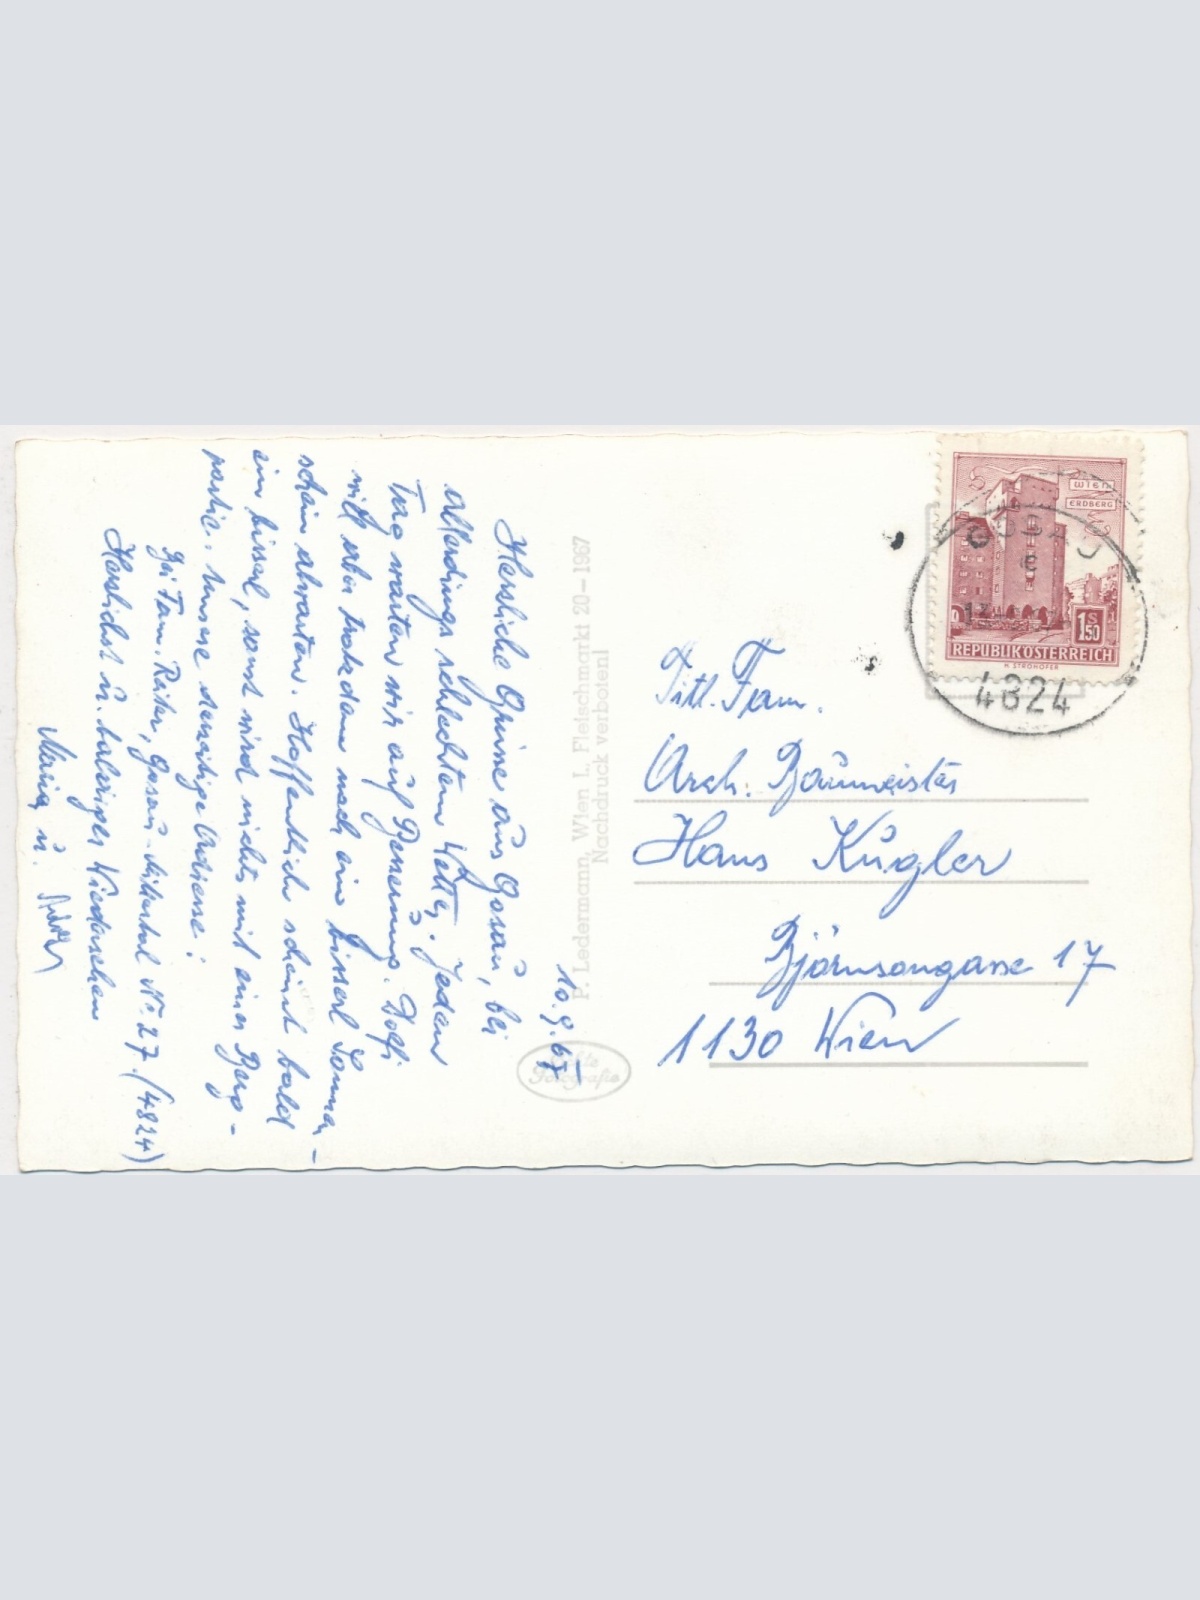 10.9.67
Herzliche Grüsse aus Gosau, bei
allerdings schlechtem Wetter. Jeden
Tag warten wir auf Besserung. Dolfi
will aber trotzdem noch ein bisserl Sonnen-
schein abwarten. Hoffentlich scheint bald
ein bissel, sonst wird nichts mit einer Berg-
partie. Unsere derzeitige Adresse:
Bei Fam. Reiter, Gosau-Mittertal Nr. 27. (4824)
Herzlichst u. baldiges Wiedersehen
Maria u.
P. Ledermann, Wien I., Fleischmarkt 20–1967
Nachdruck verboten!
Echte
Fotografie
WIEN
ERDBERG
1S50
REPUBLIK ÖSTERREICH
H. STROHOFER
GOSAU
e
4824
Titl. Fam.
Arch. Baumeister
Hans Kugler
Björnsongasse 17
1130 Wien